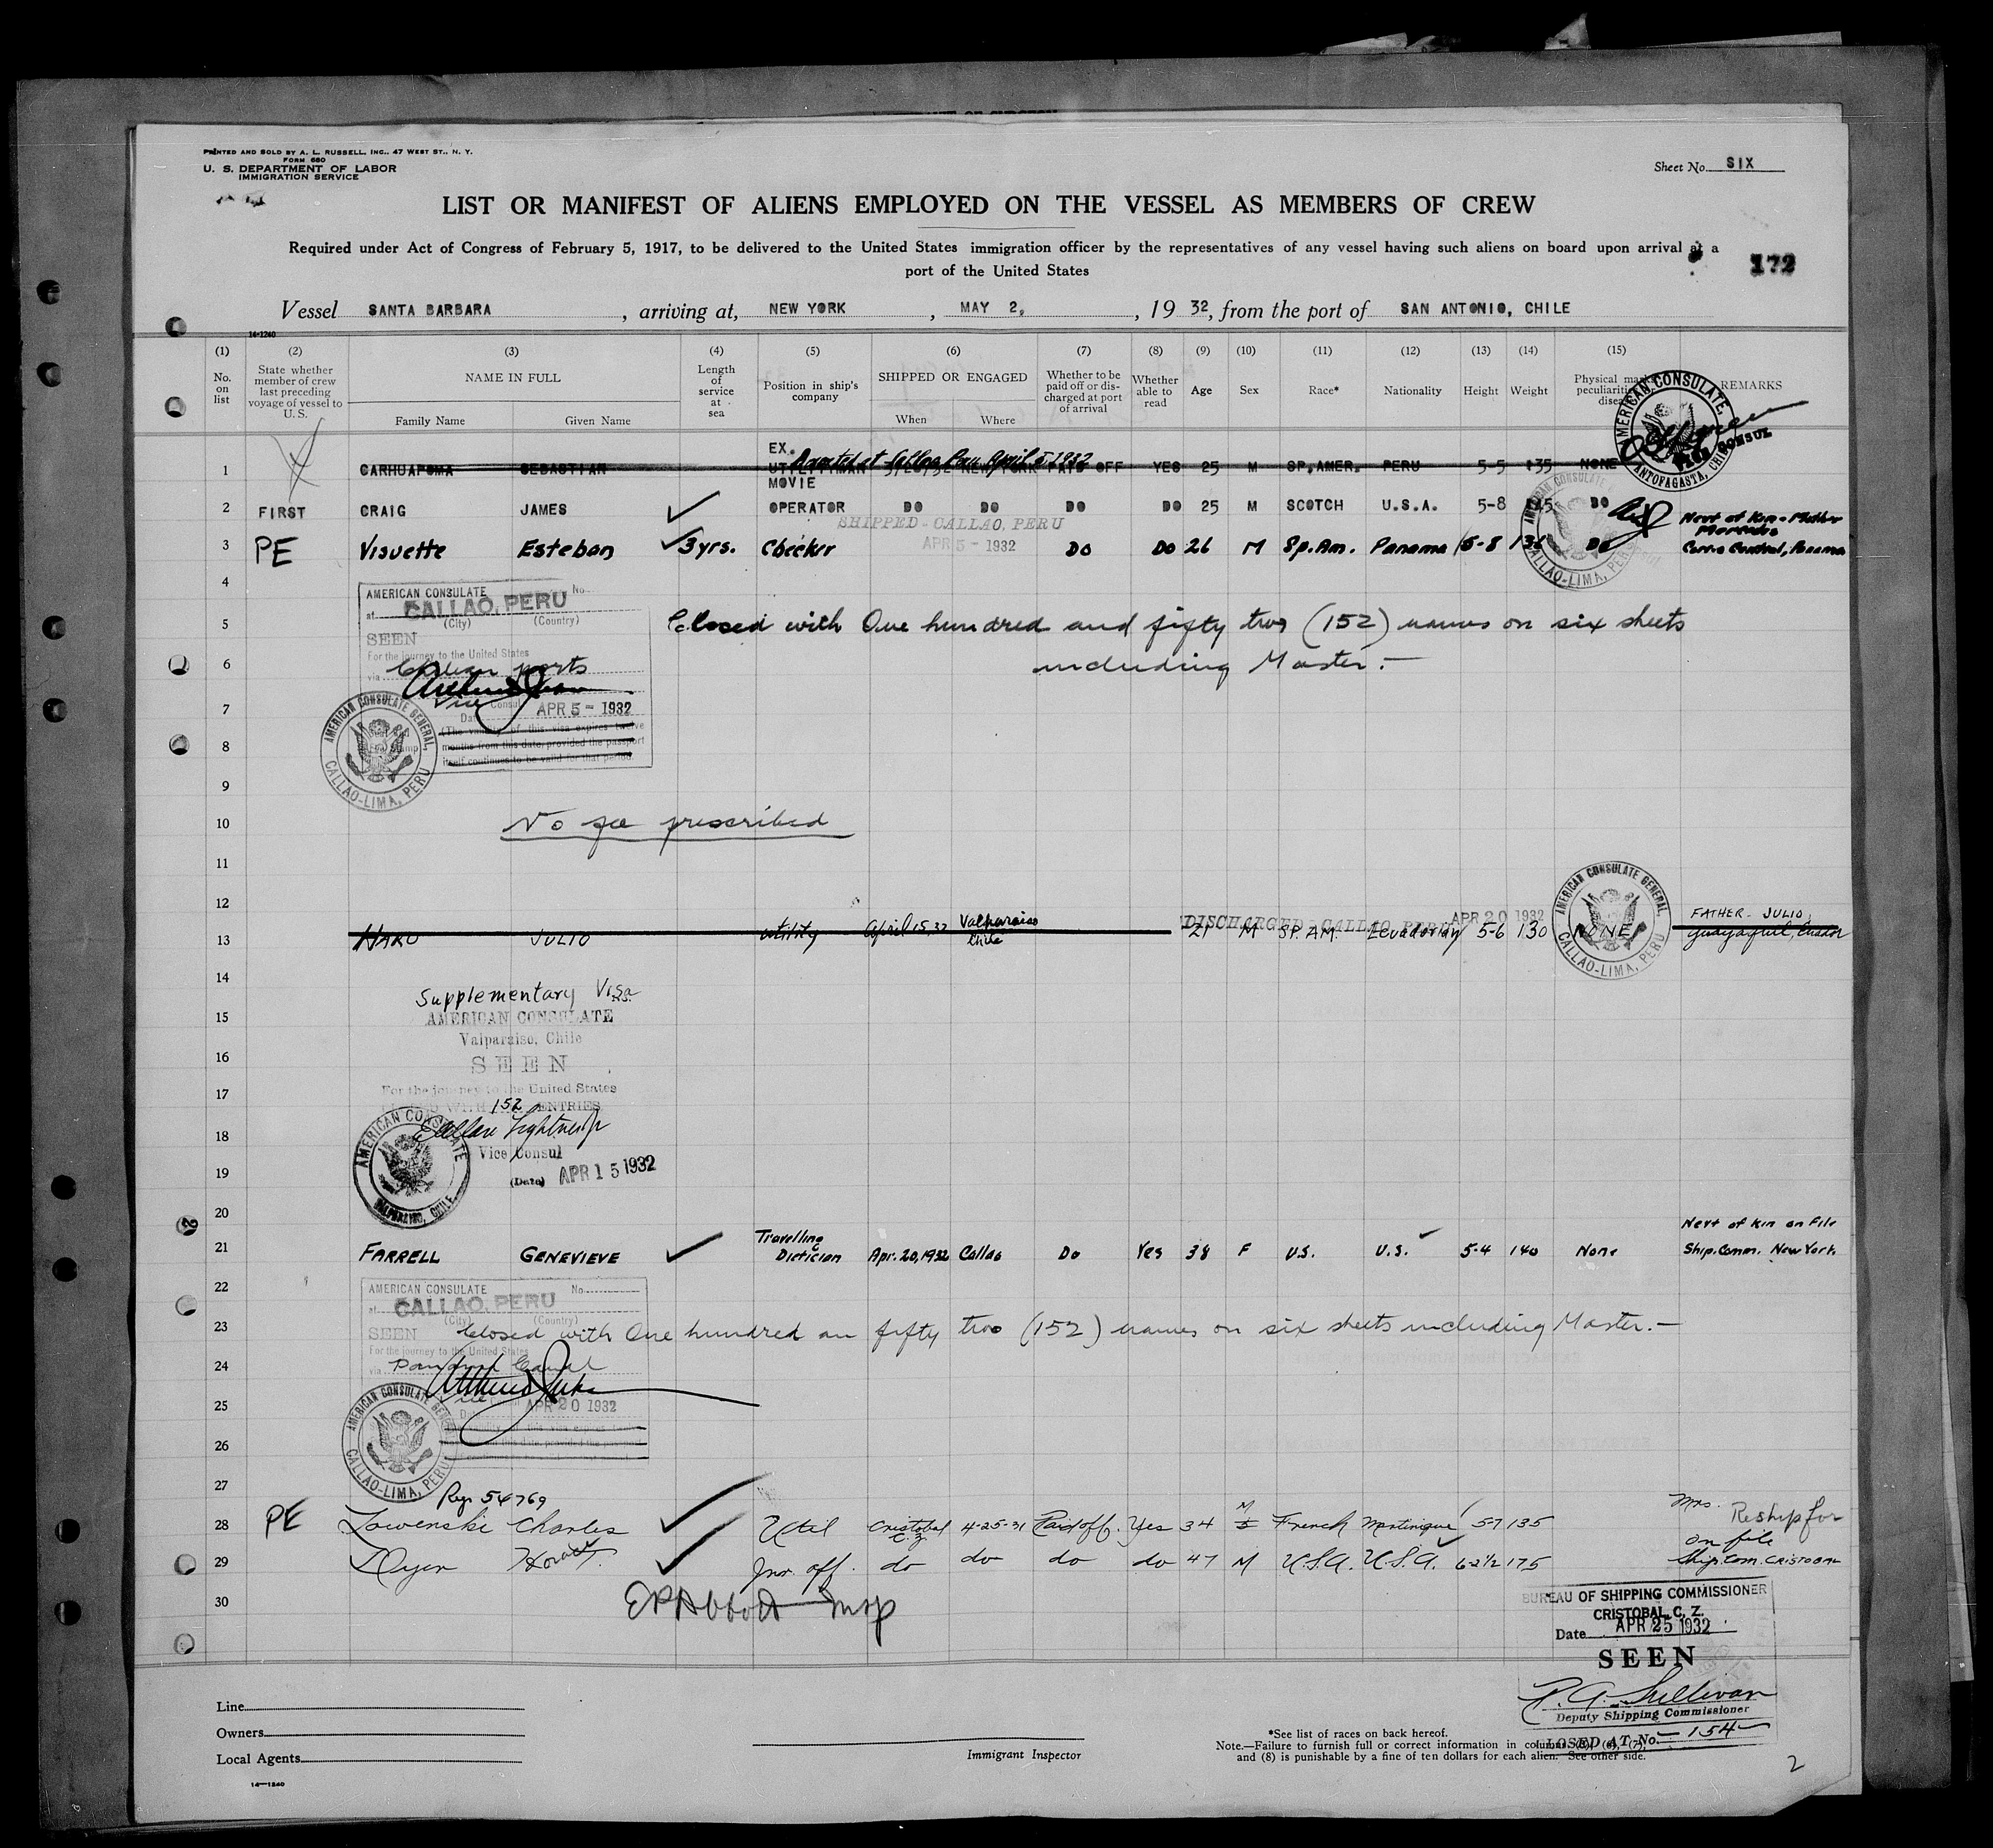 PRINTED AND SOLD BY A. L. RUSSELL, INC., 47 WEST ST., N. Y.
FORM 680
U. S. DEPARTMENT OF LABOR
IMMIGRATION SERVICE
Sheet No. SIX
LIST OR MANIFEST OF ALIENS EMPLOYED ON THE VESSEL AS MEMBERS OF CREW
Required under Act of Congress of February 5, 1917, to be delivered to the United States immigration officer by the representatives of any vessel having such aliens on board upon arrival at a
port of the United States
172
Vessel SANTA BARBARA, arriving at, NEW YORK, MAY 2, 1932, from the port of SAN ANTONIO, CHILE
14-1240
(1) (2) (3) (4) (5) (6) (7) (8) (9) (10) (11) (12) (13) (14) (15)
No. on list
State whether member of crew last preceding voyage of vessel to U.S.
NAME IN FULL
Family Name Given Name
Length of service at sea
Position in ship's company
SHIPPED OR ENGAGED
When Where
Whether to be paid off or discharged at port of arrival
Whether able to read
Age
Sex
Race*
Nationality
Height
Weight
Physical marks peculiarities
REMARKS
AMERICAN CONSULATE
ANTOFAGASTA, CHILE
CONSUL
EX.
1 CARHUAPOMA SEBASTIAN NEW YORK PAID OFF YES 25 M SP.AMER. PERU 5-5 135 NONE
Deserted at Callao Peru April 5, 1932
MOVIE
2 FIRST CRAIG JAMES OPERATOR DO DO DO DO 25 M SCOTCH U.S.A. 5-8 DO
SHIPPED-CALLAO, PERU
APR 5- 1932
Next of Kin-Mother
Mercedes
3 PE Visuette Esteban 3yrs. Checker DO DO 26 M Sp.Am. Panama 5-8 DO
Panama
4
AMERICAN CONSULATE No.
at CALLAO, PERU
(City) (Country)
5 Closed with One hundred and fifty two (152) names on six sheets
SEEN
For the journey to the United States
6 including Master.-
via ports
7
Vice Consul
Date APR 5- 1932
(The validity of this visa expires twelve
8 months from this date, provided the passport
itself continues to be valid for that period.
AMERICAN CONSULATE GENERAL,
CALLAO-LIMA, PERU
9
10 No fee prescribed
11
12
AMERICAN CONSULATE GENERAL,
CALLAO-LIMA, PERU
DISCHARGED-CALLAO, PERU APR 20 1932
FATHER- JULIO,
13 HARO JULIO utility April 15,32 Valparaiso Chile 21 M SP. AM. Ecuadorian 5-6 130 NONE Guayaquil, Ecuador
14 Supplementary Visa
15 AMERICAN CONSULATE
Valparaiso, Chile
16 SEEN
17 For the journey to the United States
152 ENTRIES
18
Vice Consul
19 (Date) APR 15 1932
AMERICAN CONSULATE
VALPARAISO, CHILE
20
Next of Kin on File
21 FARRELL GENEVIEVE Travelling Dietician Apr. 20, 1932 Callao Do Yes 38 F U.S. U.S. 5-4 140 None Ship. Comm. New York
22
AMERICAN CONSULATE No.
at CALLAO, PERU
(City) (Country)
23 Closed with One hundred an fifty two (152) names on six sheets including Master.-
SEEN
For the journey to the United States
24 via Panama Canal
25
APR 20 1932
26
AMERICAN CONSULATE GENERAL
CALLAO-LIMA, PERU
27
Reg. 54769
28 PE Lowenski Charles Util Cristobal C.Z. 4-25-31 Paid off. Yes 34 M French Martinique 57 135
Mrs. Reship for
on file
29 Dyer Horace Jnr. off. do do do do 47 M U.S.A. U.S.A. 6-2½ 175 Ship. Com. CRISTOBAL
30
BUREAU OF SHIPPING COMMISSIONER
CRISTOBAL, C. Z.
Date APR 25 1932
SEEN
P. A. Sullivan
Deputy Shipping Commissioner
CLOSED AT No. -154-
Line
Owners
Local Agents
Immigrant Inspector
*See list of races on back hereof.
Note.—Failure to furnish full or correct information in columns (5), (6), (7),
and (8) is punishable by a fine of ten dollars for each alien. See other side.
14-1240
2